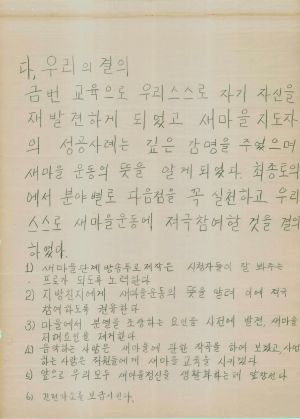 다, 우리의 결의
금번 교육으로 우리스스로 자기 자신을
재발견하게 되었고 새마을지도자
의 성공사례는 깊은 감명을 주었으며
새마을 운동의 뜻을 알게 되었다. 최종토의
에서 분야별로 다음점을 꼭 실천하고 우리
스스로 새마을운동에 적극참여할 것을 결의
하였다.
1) 새마을관계 방송푸로제작은 시청자들이 잘 봐주는
프로가 되도록 노력한다
2) 지방친지에게 새마을운동의 뜻을 알려 이에 적극
참여하도록 권유한다
3) 마을에서 분열을 조장하는 요인을 사전에 발견, 새마을
저해요인을 제거한다
4) 음악하는 사람은 새마을에 관한 작곡을 하여 보겠고, 사업
하는 사람은 직원들에게 새마을 교육을 시키겠다
5) 앞으로 우리모두 새마을정신을 생활화하는데 앞장선다
6)